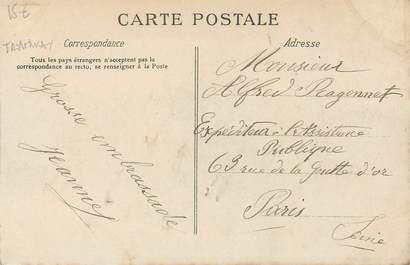 15€
CARTE POSTALE
Correspondance
Tous les pays étrangers n'acceptent pas la
correspondance au recto, se renseigner à la Poste
Grosse embrassade
Jeanne
Adresse
Monsieur
Alfred Ragonnet
Expéditeur à l'Assistance
Publique
63 rue de la Goutte d'or
Paris
Seine